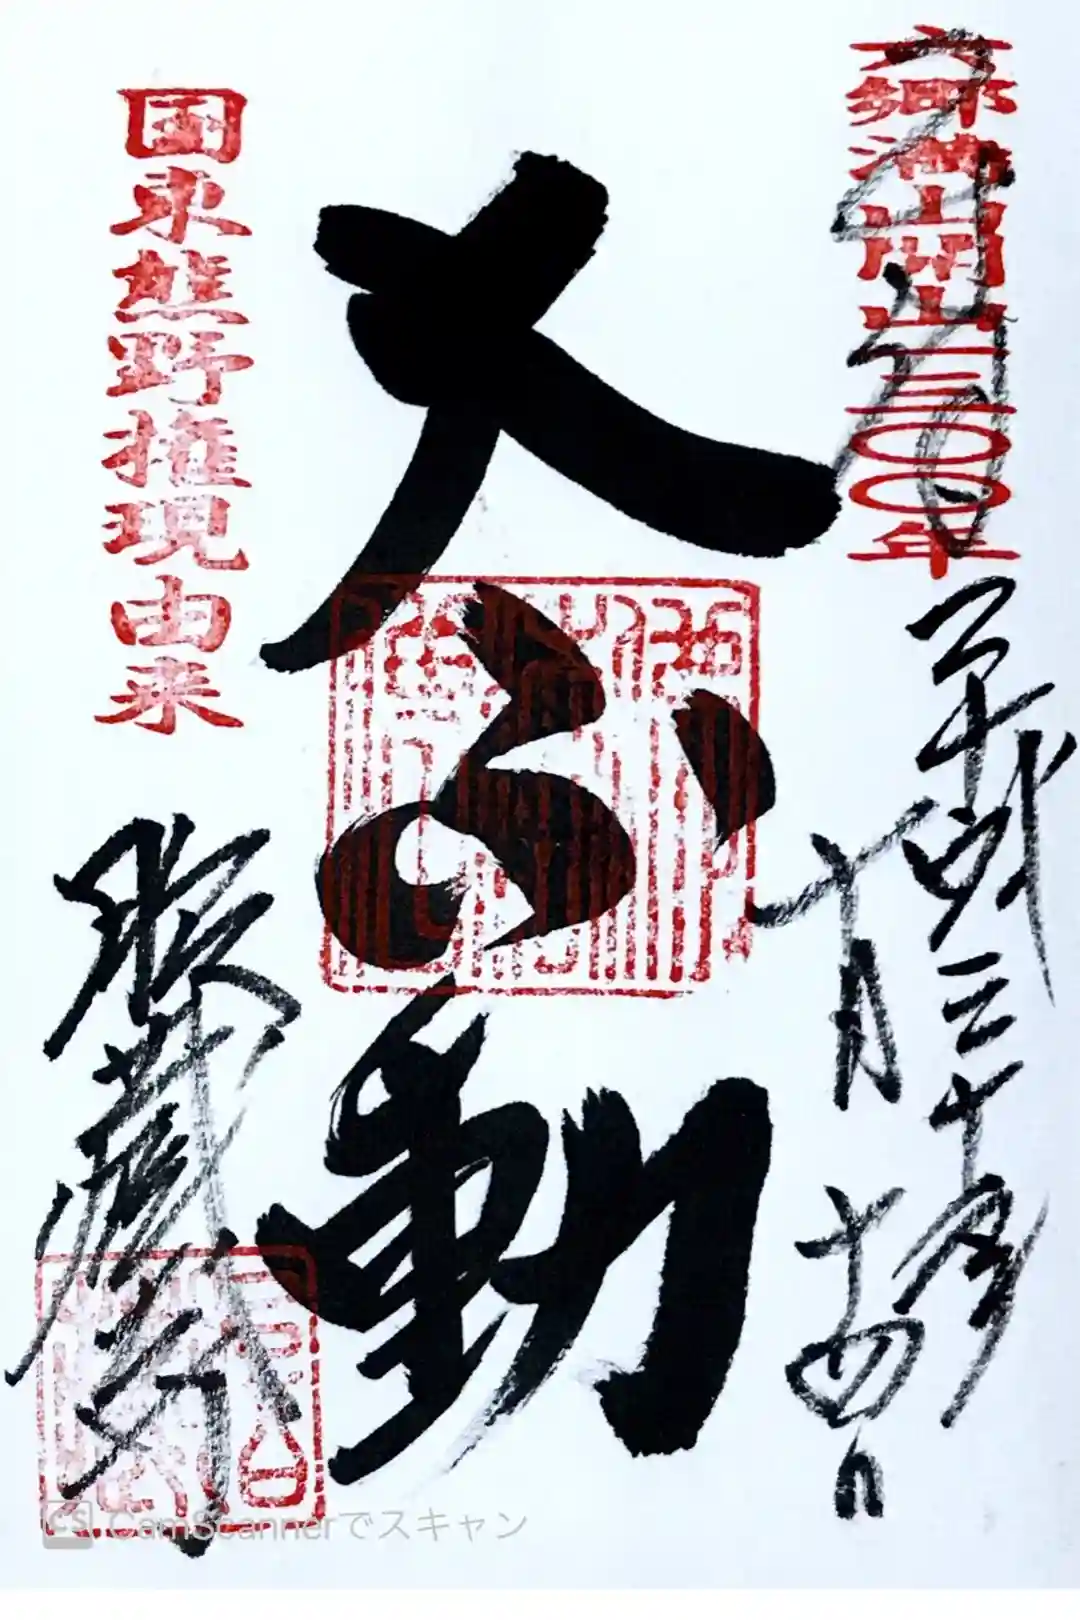 六郷満山開山一三〇〇年
奉拝
平成三十年
十月十四日
大ふ動
国東熊野権現由来
胎蔵寺
CS CamScannerでスキャン